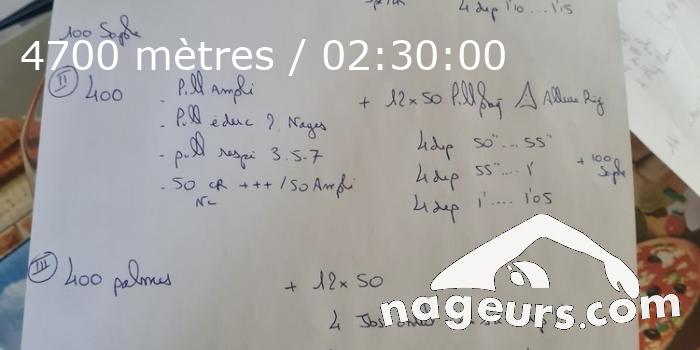 4 dep 1'10 ... 1'15
100 Souple
4700 mètres / 02:30:00
II 400
- Pull Ampli
- Pull éduc 2 Nages
- pull respi 3.5.7
- 50 CR +++ / 50 Ampli
NC
+ 12x50 Pull Allure
4 dep 50" ... 55"
4 dep 55" .... 1'
4 dep 1' .... 1'05
+ 100 Souple
III 400 palmes
+ 12x50
4
nageurs.com